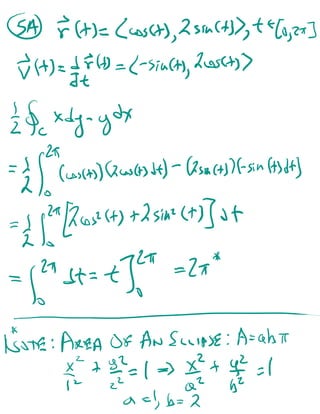 5A r⃗(t) = ⟨cos(t), 2sin(t)⟩, t ∈ [0, 2π]
v⃗(t) = d/dt r⃗(t) = ⟨-sin(t), 2cos(t)⟩
1/2 ∮_C xdy - ydx
= 1/2 ∫₀^2π (cos(t))(2cos(t)dt) - (2sin(t))(-sin(t)dt)
= 1/2 ∫₀^2π [2cos²(t) + 2sin²(t)] dt
= ∫₀^2π dt = t]₀^2π = 2π*
*NOTE: AREA OF AN ELLIPSE: A=abπ
x²/1² + y²/2² = 1 ⇒ x²/a² + y²/b² = 1
a=1, b=2